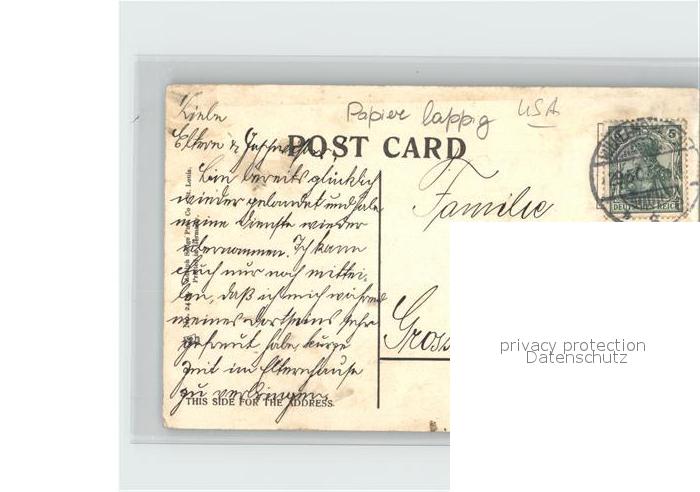 Papier lappig USA
Liebe
Eltern & Geschwister,
POST CARD
Bin bereits glücklich
wieder gelandet und habe
meine Dienste wieder
übernommen. Ich kann
Euch nur noch mittei-
len, daß ich mich während
meines Dortseins sehr
gefreut habe, kurze
Zeit im Elternhause
zu verbringen.
THIS SIDE FOR THE ADDRESS.
St. Louis.
Familie
Gross
5
DEUTSCHES REICH
privacy protection
Datenschutz